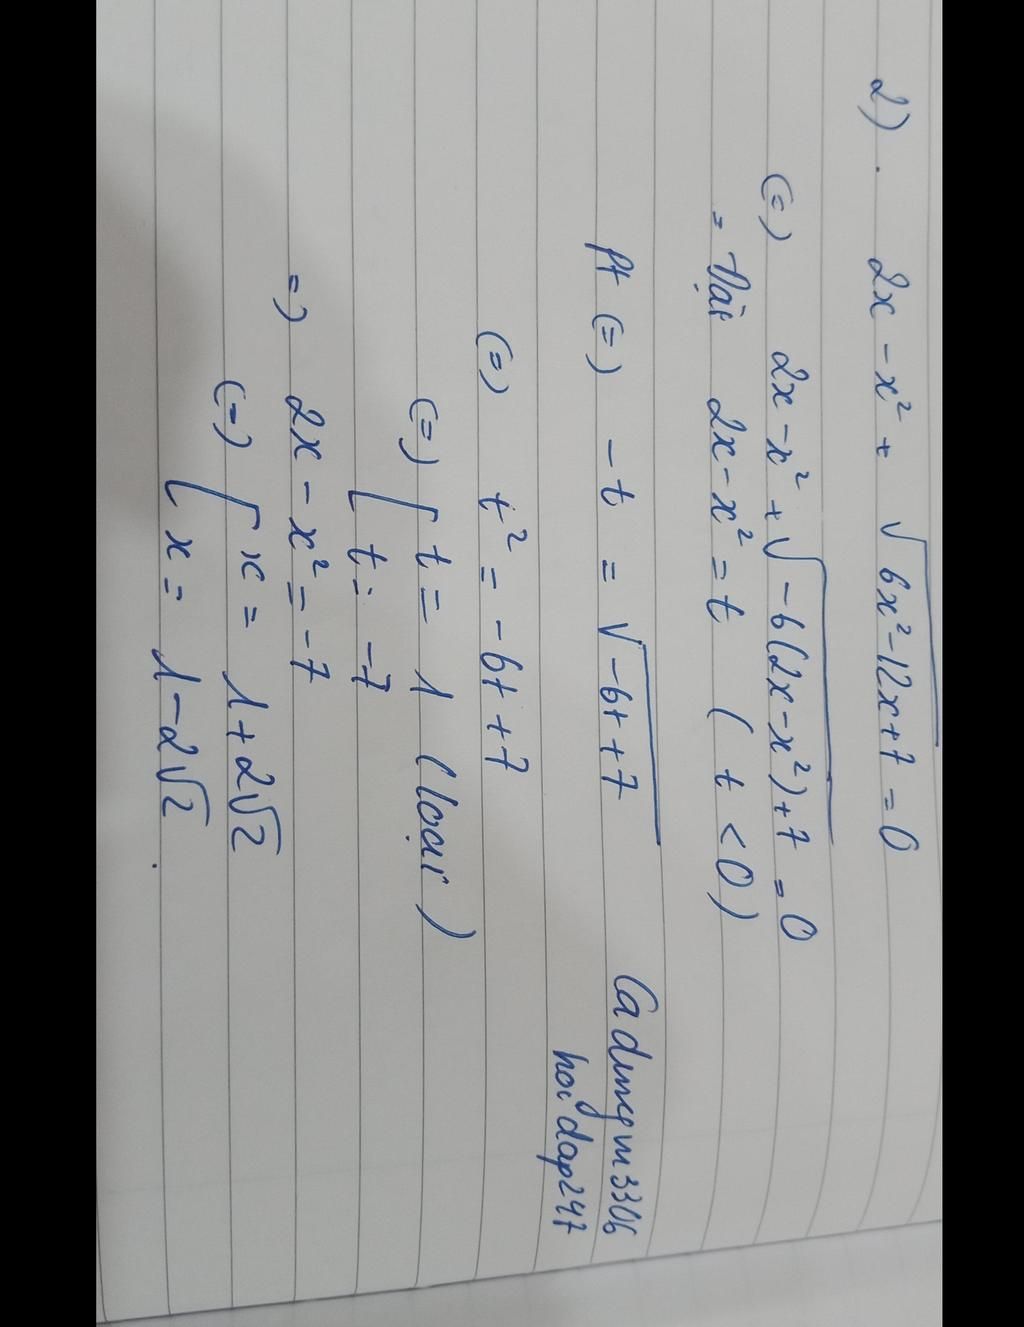 2). 2x - x² + √(6x² - 12x + 7) = 0
(=) 2x - x² + √(-6(2x - x²) + 7) = 0
= Đặt 2x - x² = t ( t < 0 )
Pt (=) -t = √(-6t + 7)
(=) t² = -6t + 7
(=) [ t = 1 (loại)
[ t = -7
=) 2x - x² = -7
(=) [ x = 1 + 2√2
[ x = 1 - 2√2.
hoidap247